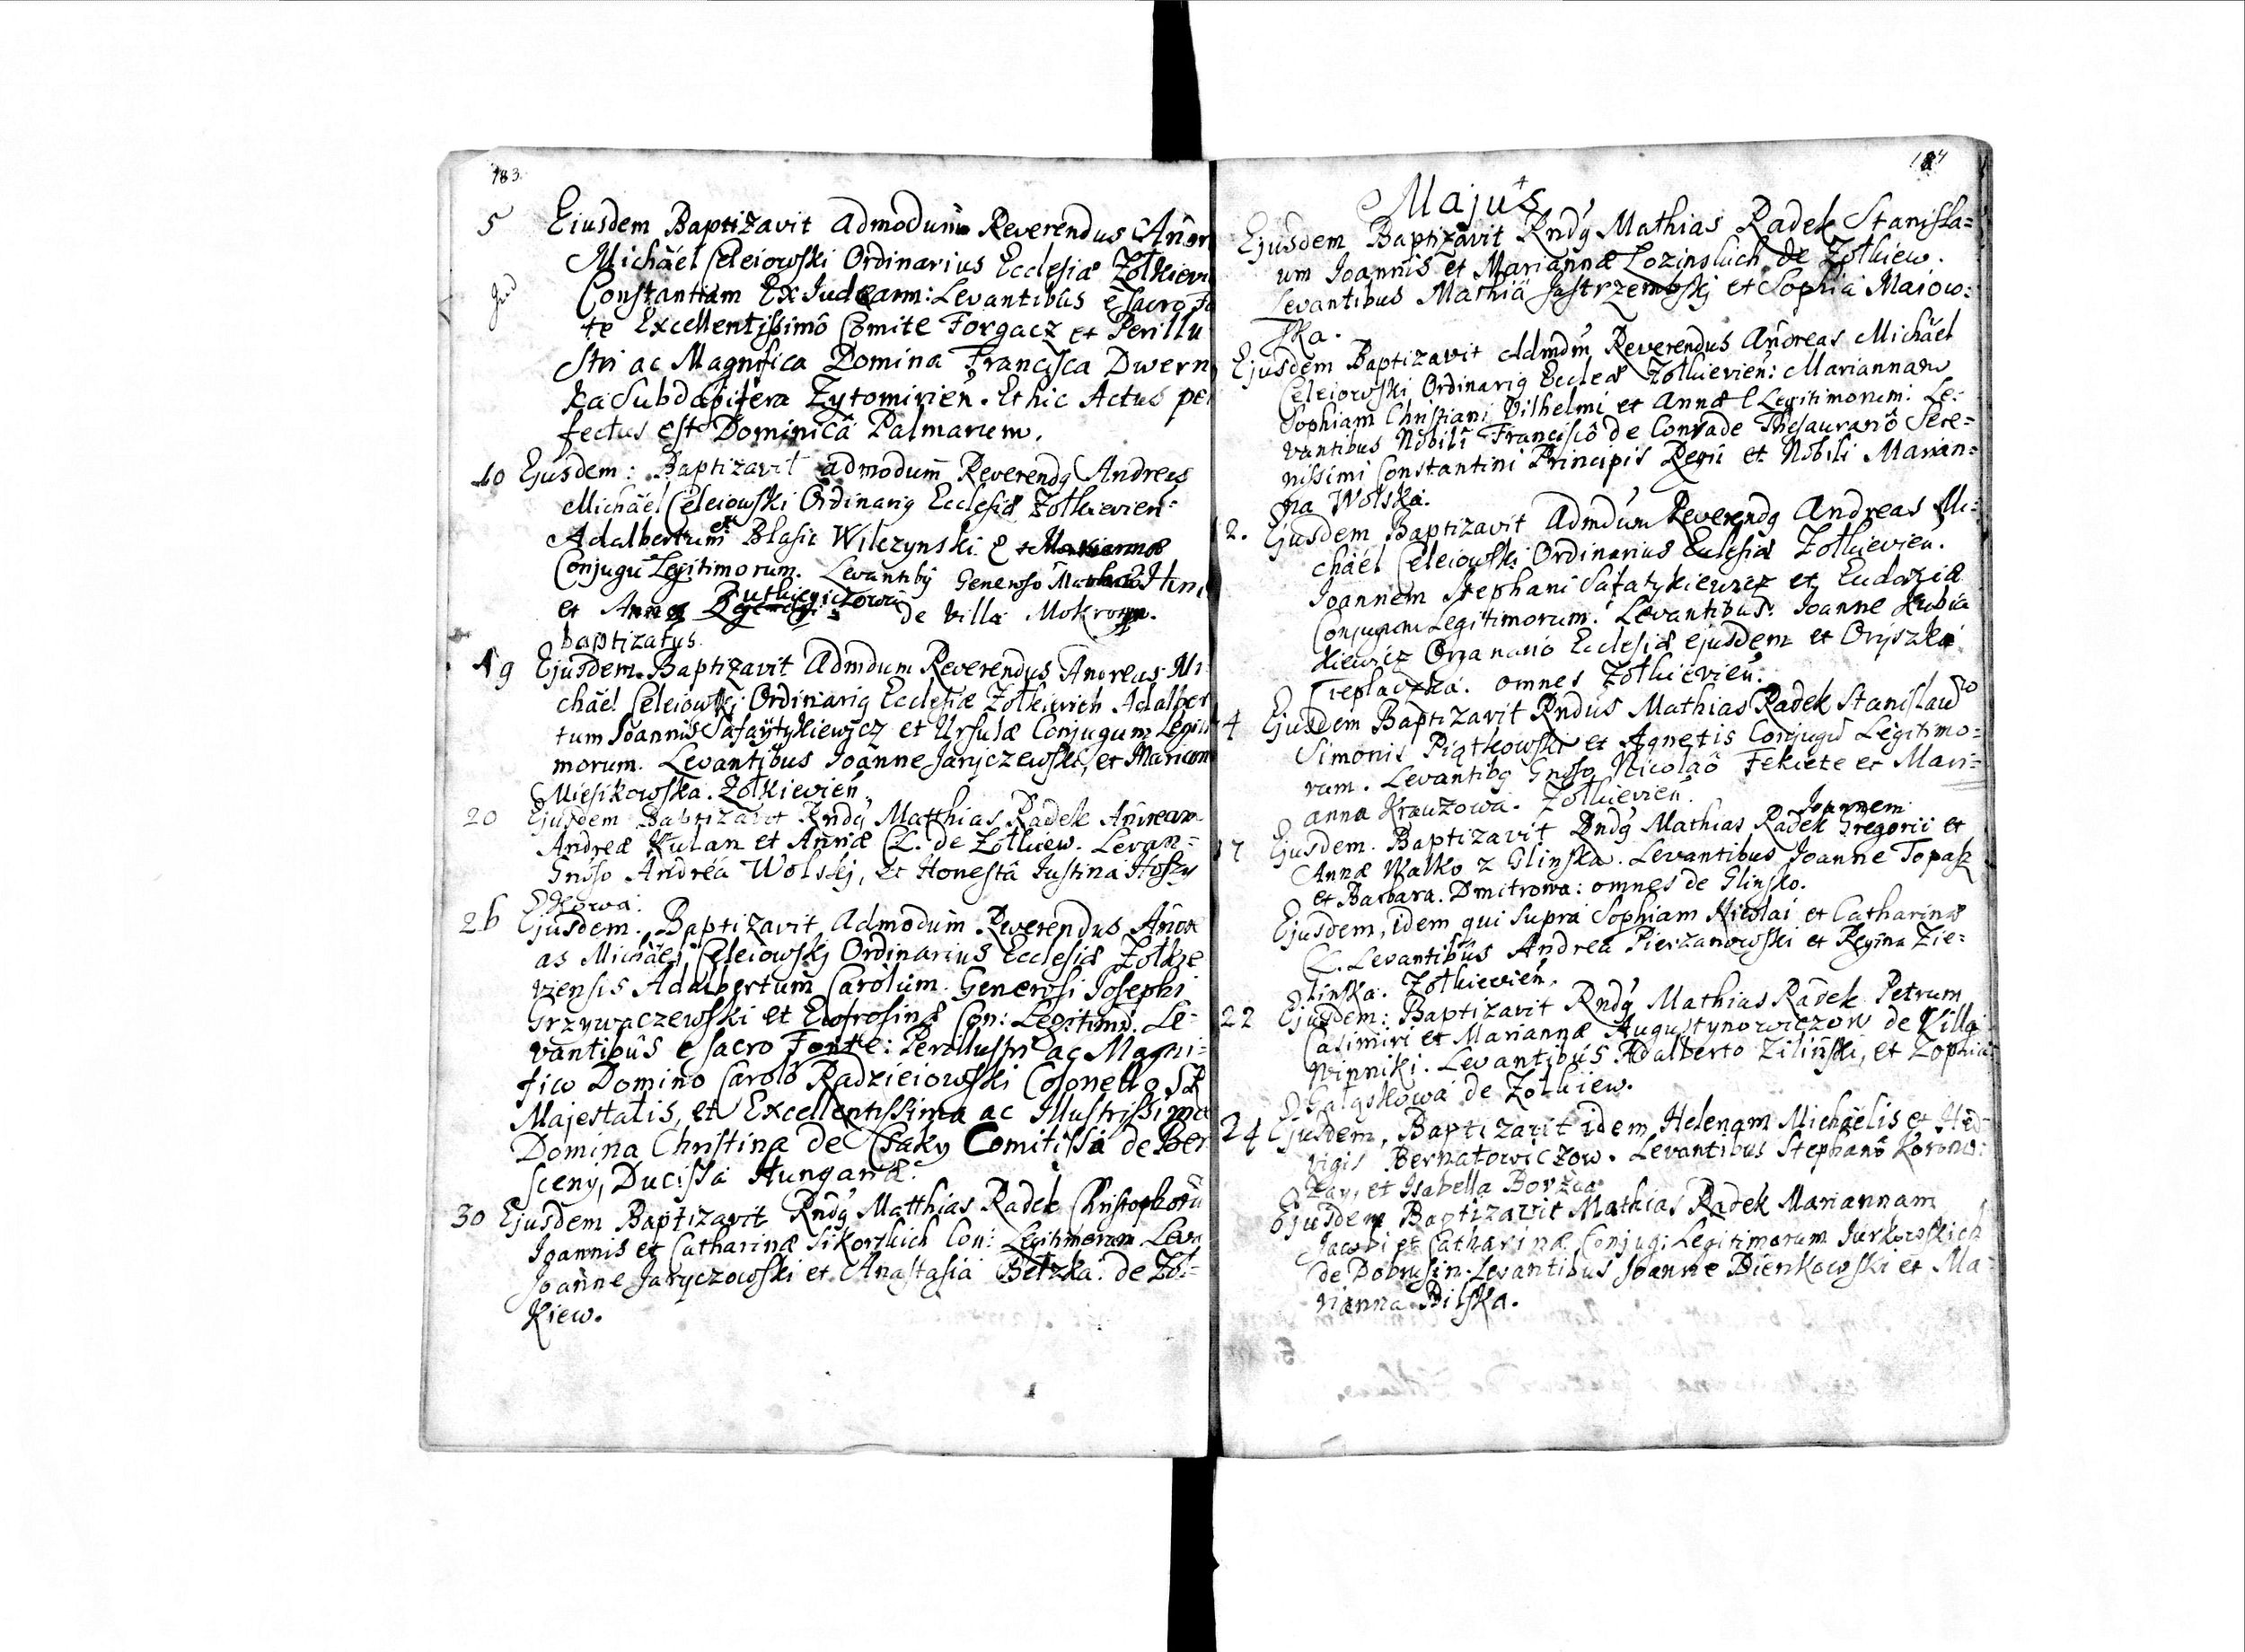 183.
5 Eiusdem Baptizavit Admodum Reverendus Andr
Michäel Celeiowski Ordinarius Ecclesiæ Zołkievi
Constantiam Ex Judæam: Levantibus è sacro Fo
te Excellentissimô Comite Forgacz et Perillu
stri ac Magnifica Domina Francisca Dwern
ka Subdapifera Zytomirień. Et hic Actus per
fectus est Dominicâ Palmarum.
10 Ejusdem: Baptizavit admodum Reverendg Andreas
Michäel Celeiowski Ordinarig Ecclesiæ Zołkievien:
Adalbertum et Blasii Wilczynski
Conjugu Legitimorum. Levantibg Generoso
et Anna de Villa Mokrotyn.
baptizatus.
19 Ejusdem. Baptizavit Admdum Reverendus Andreas Mi
chäel Celeiowski Ordinarig Ecclesiæ Zołkievień Adalber
tum Joannis Safaÿtykiewicz et Ursulæ Conjugum Legiti
morum. Levantibus Joanne Jaryczewski, et Mariann
Miesikowska. Zołkievień.
20 Ejusdem Baptizavit Rndg Matthias Radek Andream
Andreæ Kulan et Annæ CL. de Zółkiew. Levan=
Gnoso Andreá Wolskj, et Honestâ Justina Hoszy
dkowa.
26 Ejusdem. Baptizavit Admodum Reverendus Andre
as Michäel Celeiowskj Ordinarius Ecclesiæ Zołkie
viensis Adalbertum Carolum. Generosi Josephi
Grzywaczewski et Eufrosinæ Con: Legitimo. Le-
vantibus è sacro Fonte: Perillustri ac Magni=
fico Domino Carolô Radzieiowski Colonello S R
Majestatis, et Excellentissima ac Illustrissima
Domina Christina de Csaky Comitissa de Ber
sceny, Ducissa Hungaræ.
30 Ejusdem Baptizavit Rndg Matthias Radek Christophorū
Joannis et Catharinæ Sikorskich Con: Legitimorum Leva
Joanne Jaryczowski et Anastasia Bełzka. de Zół=
kiew.
184
Majus
Ejusdem Baptizavit Rndg Mathias Radek Stanisla=
um Joannis et Mariannæ Lozinskich de Zołkiew.
Levantibus Mathiä Jastrzembskj et Sophia Maiow=
ska.
Ejusdem Baptizavit Admdm Reverendus Andreas Michäel
Celeiowski Ordinarig Eccleæ Zołkievień: Mariannam
Sophiam Christiani Vilhelmi et Annæ C Legitimorum: Le:
vantibus Nobili Franciscô de Conrade Thesaurariô Sere=
nissimi Constantini Principis Regii et Nobili Marian=
na Wolska.
2. Ejusdem Baptizavit Admdum Reverendg Andreas Mi:
chäel Celeiowski Ordinarius Eclesiæ Zołkievień.
Joannem Stephani Safatykiewicz et Eudoxiæ
Conjugum Legitimorum. Levantibus: Joanne Kubia
kiewicz Organario Ecclesiæ ejusdem et Oryszka
Cieplaczka. omnes Zołkievień.
4 Ejusdem Baptizavit Rndus Mathias Radek Stanislaū
Simonis Piątkowski et Agnetis Conjugū Legitimo=
rum. Levantibg Gnoso Nicolaô Fekiete et Mari=
anna Krauzowa. Zołkievień.
Joannem
17 Ejusdem. Baptizavit Rndg Mathias Radek Gregorii et
Annæ Walko z Glinska. Levantibus Joanne Topasz
et Barbara. Dmitrowa: omnes de Glinsko.
Ejusdem, idem qui supra Sophiam Nicolai et Catharinæ
CL. Levantibus Andrea Pierzanowski et Regina Zie=
linska. Zołkievień.
22 Ejusdem: Baptizavit Rndg Mathias Radek Petrum
Casimiri et Mariannæ Augustynowiczow de Villa
Winniki. Levantibus Adalberto Zilinski, et Zophia
Gałąskowa de Zołkiew.
24 Ejusdem, Baptizavit idem Helenam Michäelis et Hed
vigis Bernatowiczow. Levantibus Stephanô Korono:
zay, et Isabella Borzca.
Ejusdem Baptizavit Mathias Radek Mariannam
Jacobi et Catharinæ Conjug: Legitimorum Jurkowskich
de Dobrusin. Levantibus Joanne Dienkowski et Ma=
rianna Bilska.